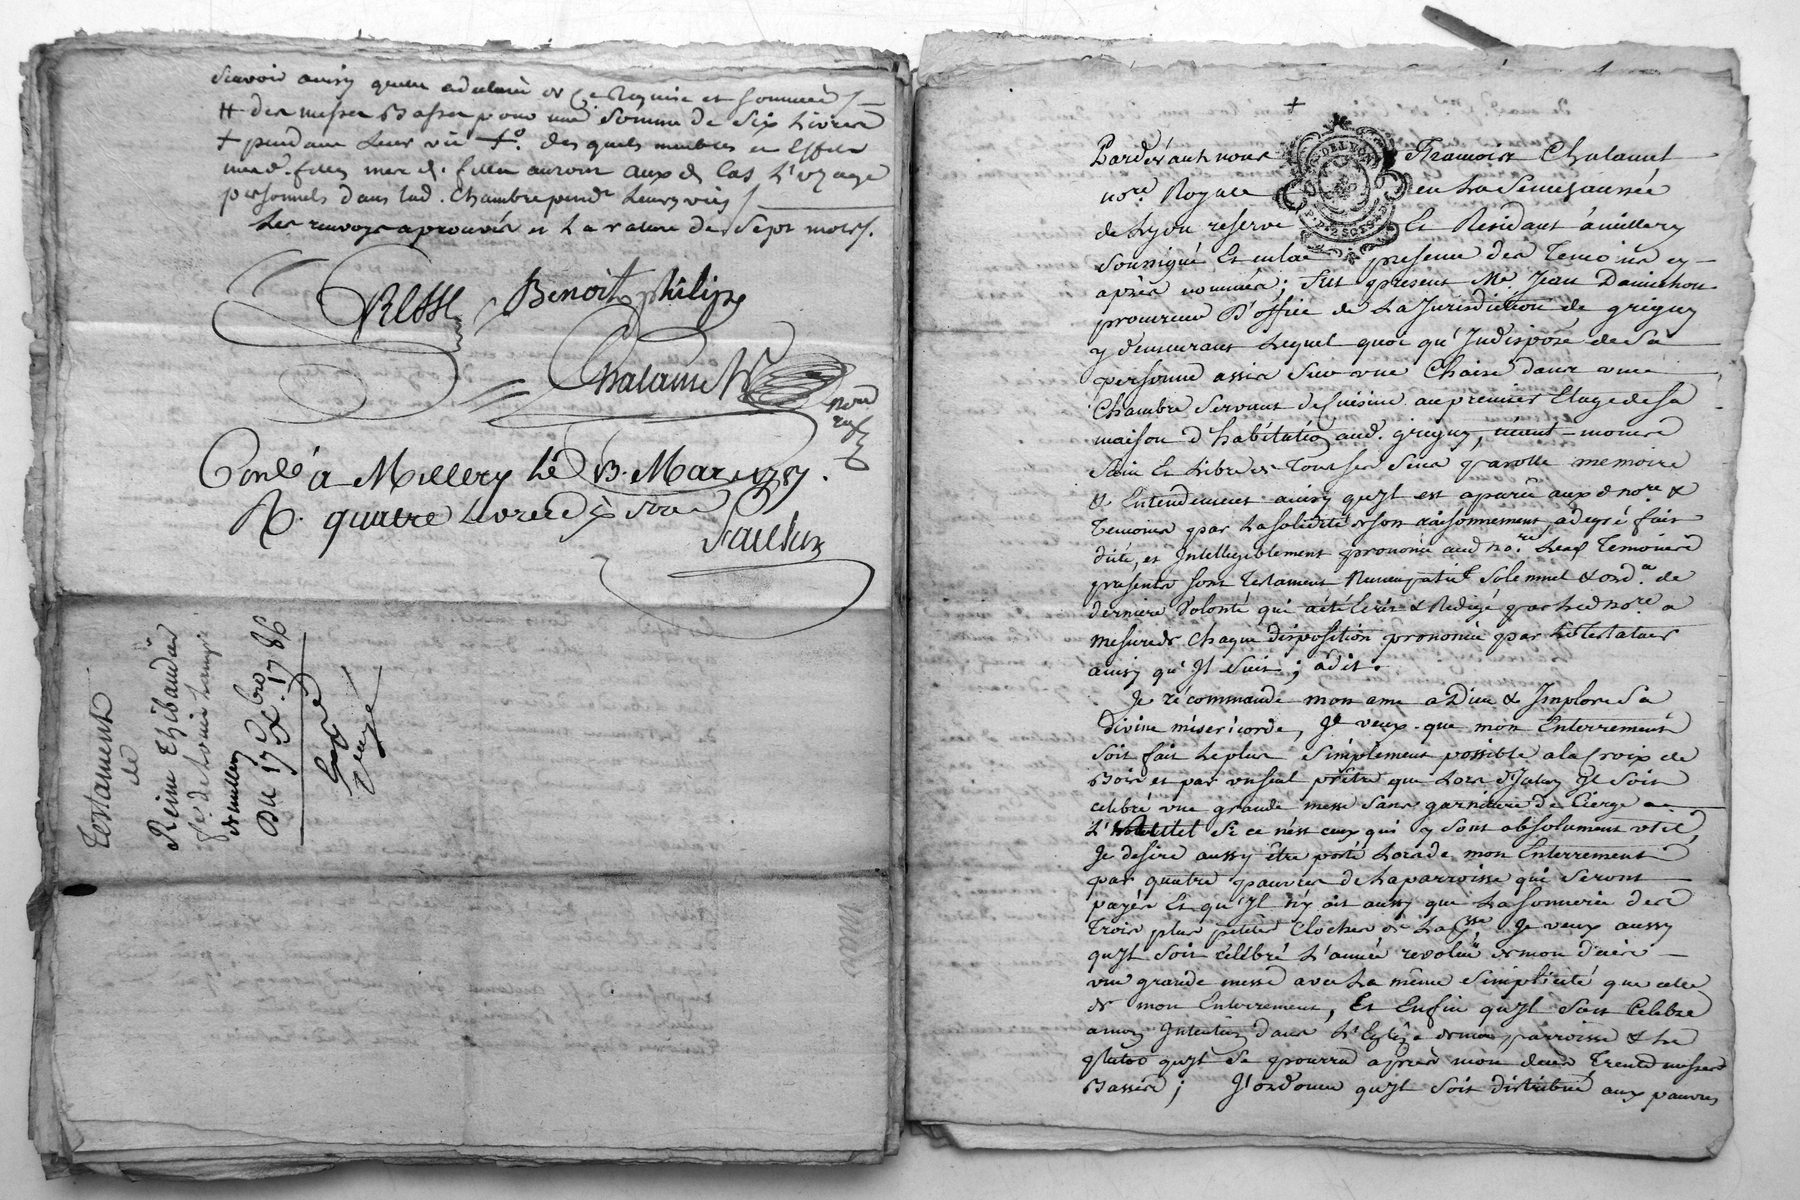 Scavoir ainsy quelle a declaré de ce Requise et sommée /
# des messes Basses pour une Somme de Six Livres
+ pendant leur vie +° des quels meubles et Effets
mere & filles auront aux d. Cas L'usage
personnels dans lad. Chambre pendt leurs vies /
Les renvoys aprouvés et La rature de Sept mots.
Benoit philipe
Chalamel
nore
Conlé à Millery Le 13. Mars 1787.
R. quatre Livres
Testament
de
Reine Thibaudier
de Millery
Du 17 Xbre 1786
+
Pardevant nous François Chalamel
nore. Royal en La Senechaussée
de Lyon reservé Et Residant à millery
soussigné Et en la presence des Temoins cy-
après nommés; fut present Mr. Jean Dainichon
procureur D'office de La Jurisdiction de grigny
y demeurant Lequel quoi qu'Indisposé de Sa
personne assis Sur une Chaise dans une
Chambre Servant de Cuisine au premier Etage de Sa
maison d'habitation aud. grigny, neant-moins
Sain Et Libre de Tous ses Sens parolle memoire
& Entendement ainsy qu'Il est aparu aux d nore &
Temoins par La solidité de son raisonnement, a de gré fait
dicté, et Intelligiblement prononcé aud nore. Lesd Temoins
presents son Testament Nuncupatif Solemnel & ordce de
derniere Volonté qui a été Ecrit & Redigé par Led nore a
mesure de Chaque disposition prononcée par Le Testateur
ainsy qu'Il Suit; a dit.
Je recommande mon ame a Dieu & Implore Sa
Divine misericorde, Je veux que mon Enterrement
Soit fait Le plus Simplement possible a la Croix de
Bois et par un seul prêtre que Lors d'Icelui Il Soit
celebré une grande messe Sans garniture de Cierge a
L' Si ce n'est ceux qui y sont absolument util,
Je desire aussy être porté Lors de mon Enterrement
par quatre pauvres de La parroisse qui Seront
payés Et qu'Il n'y ait aussy que La Sonnerie des
Trois plus petites Cloches de La Psse. Je veux aussy
qu'Il Soit célébré L'année revolue de mon decès
une grande messe avec La même Simplicité que celle
de mon Enterrement, Et Enfin qu'Il Soit Celebré
a mon Intention dans L'Eglise de ma parroisse & Le
plutot qu'Il Se pourra après mon decès Trente messes
Basses; J'ordonne qu'Il Soit distribué aux pauvres